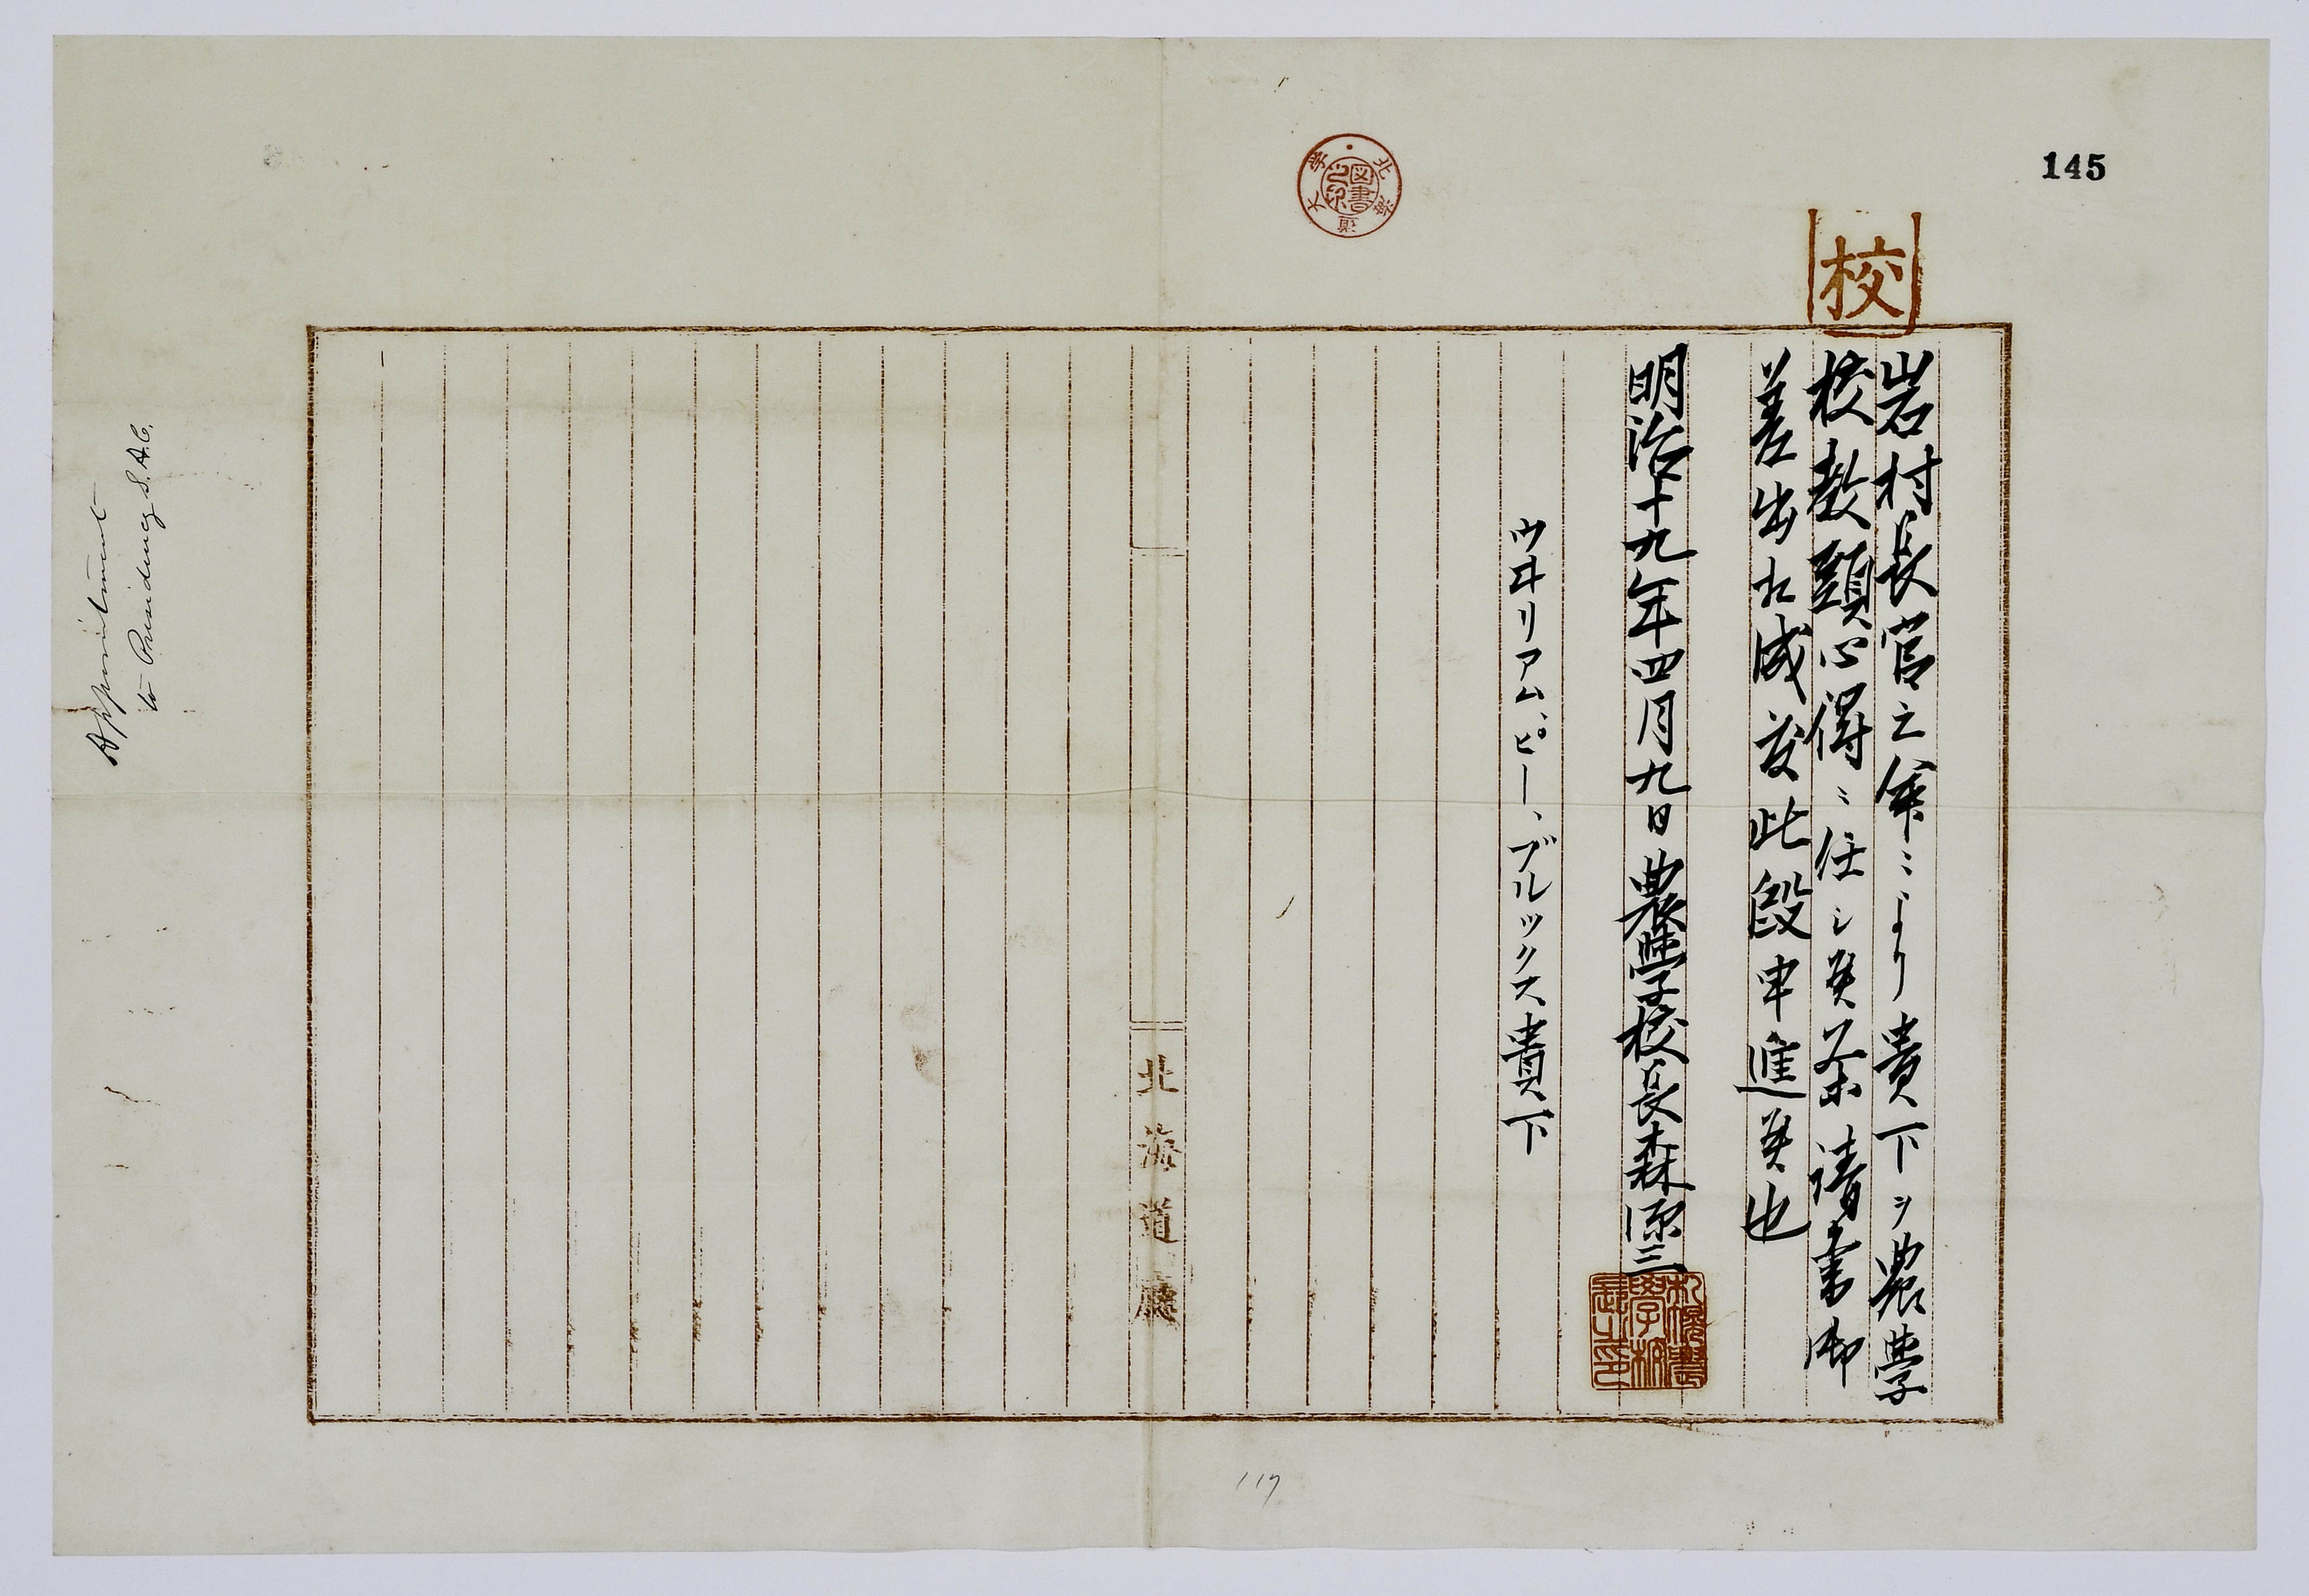 145
校
岩村長官之命ニより貴下ヲ農學
校教頭心得ニ任シ候条請書御
差出相成度此段申進候也
明治十九年四月九日 農學校長森源三
札幌農學校長之印
ウヰリアム、ピー、ブルックス貴下
北海道廳
北海道大学図書
Appointment
to Presidency S.A.C.
117